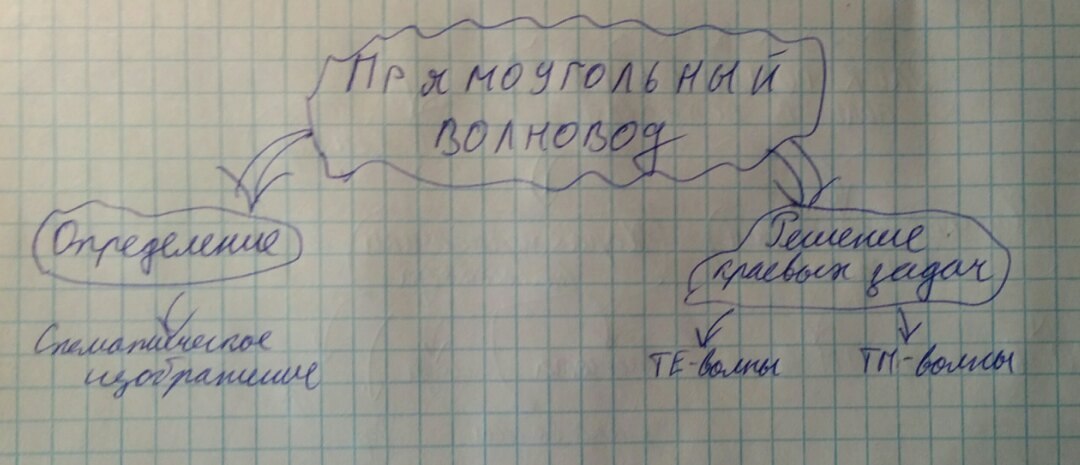 Прямоугольный
волновод
Определение
Решение
краевых задач
Схематическое
изображение
ТЕ-волны
ТМ-волны